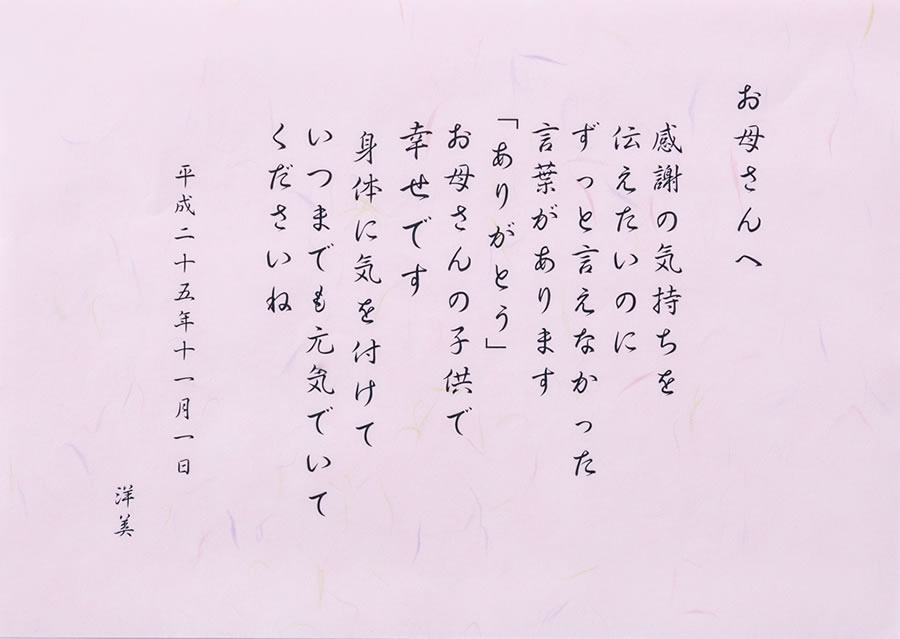 お母さんへ
感謝の気持ちを
伝えたいのに
ずっと言えなかった
言葉があります
「ありがとう」
お母さんの子供で
幸せです
身体に気を付けて
いつまでも元気でいて
くださいね
平成二十五年十一月一日
洋美